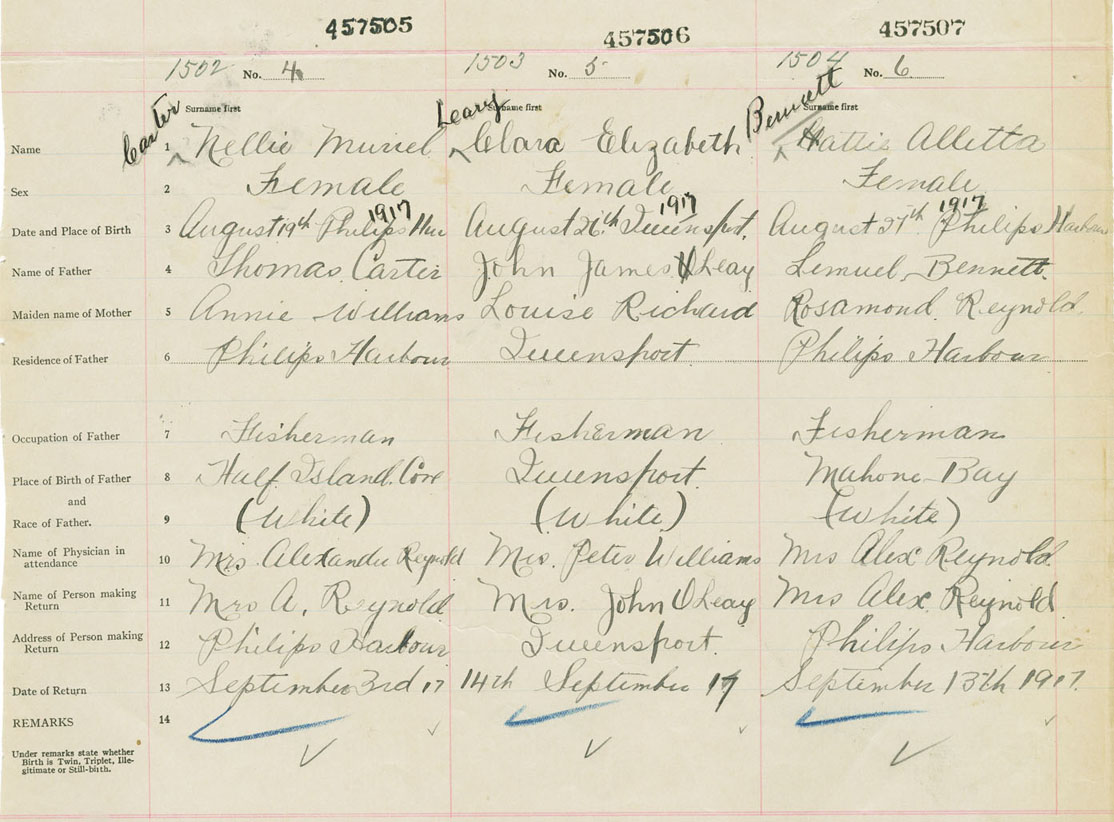 457505 457506 457507
1502 No. 4 1503 No. 5 1504 No. 6
Carter Surname first Leary Surname first Bennett Surname first
Name 1 Nellie Muriel Clara Elizabeth Hattie Alletta
Sex 2 Female Female Female
1917 1917 1917
Date and Place of Birth 3 August 19th Philips Har August 26th Queensport. August 27th Philips Harbour
Name of Father 4 Thomas Carter John James OLeay Lemuel Bennett.
Maiden name of Mother 5 Annie Williams Louise Richard Rosamond Reynold.
Residence of Father 6 Philips Harbour Queensport Philips Harbour
Occupation of Father 7 Fisherman Fisherman Fisherman
Place of Birth of Father 8 Half Island Cove Queensport. Mahone Bay
and
Race of Father. 9 (White) (White) (White)
Name of Physician in
attendance 10 Mrs. Alexander Reynold Mrs. Peter Williams Mrs Alex Reynold.
Name of Person making
Return 11 Mrs A. Reynold Mrs. John OLeay Mrs Alex. Reynold
Address of Person making
Return 12 Philips Harbour Queensport. Philips Harbour
Date of Return 13 September 3rd 17 14th September 17 September 13th 1917.
REMARKS 14
Under remarks state whether
Birth is Twin, Triplet, Ille-
gitimate or Still-birth.